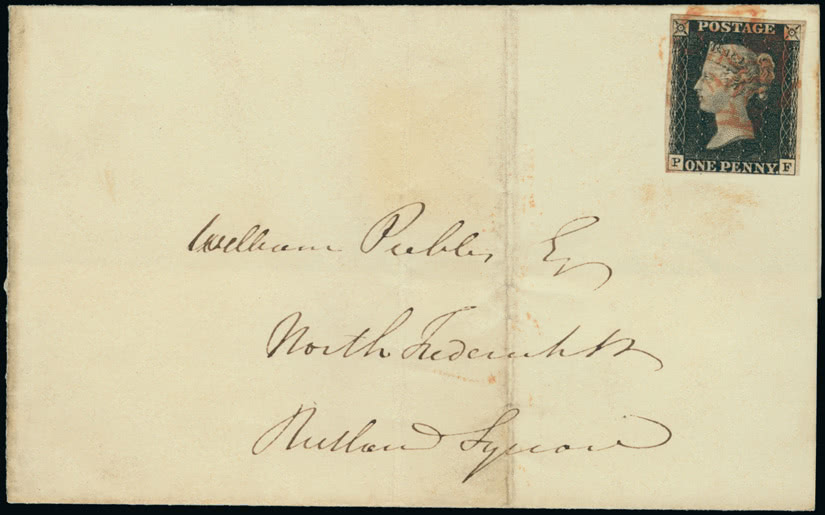 POSTAGE
ONE PENNY
P F
William Peebles Esq
North Frederick St
Rutland Square